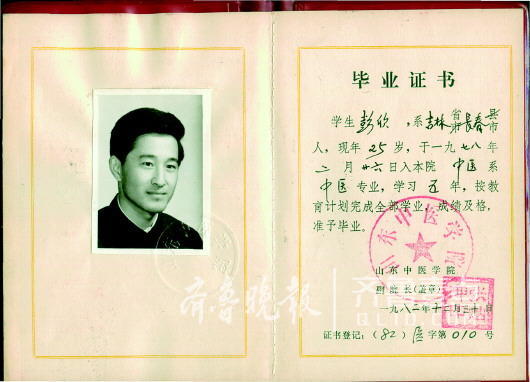 毕业证书
学生 彭欣 ,系 吉林 省市 长春 县市
人，现年 25 岁，于一九七八年
二月廿六日入本院 中医 系
中医 专业，学习 五 年，按教
育计划完成全部学业，成绩及格，
准予毕业。
山东中医学院
山东中医学院
副院长(盖章)
一九八二年十二月三十日
证书登记：(82)医字第010号
齐鲁晚报